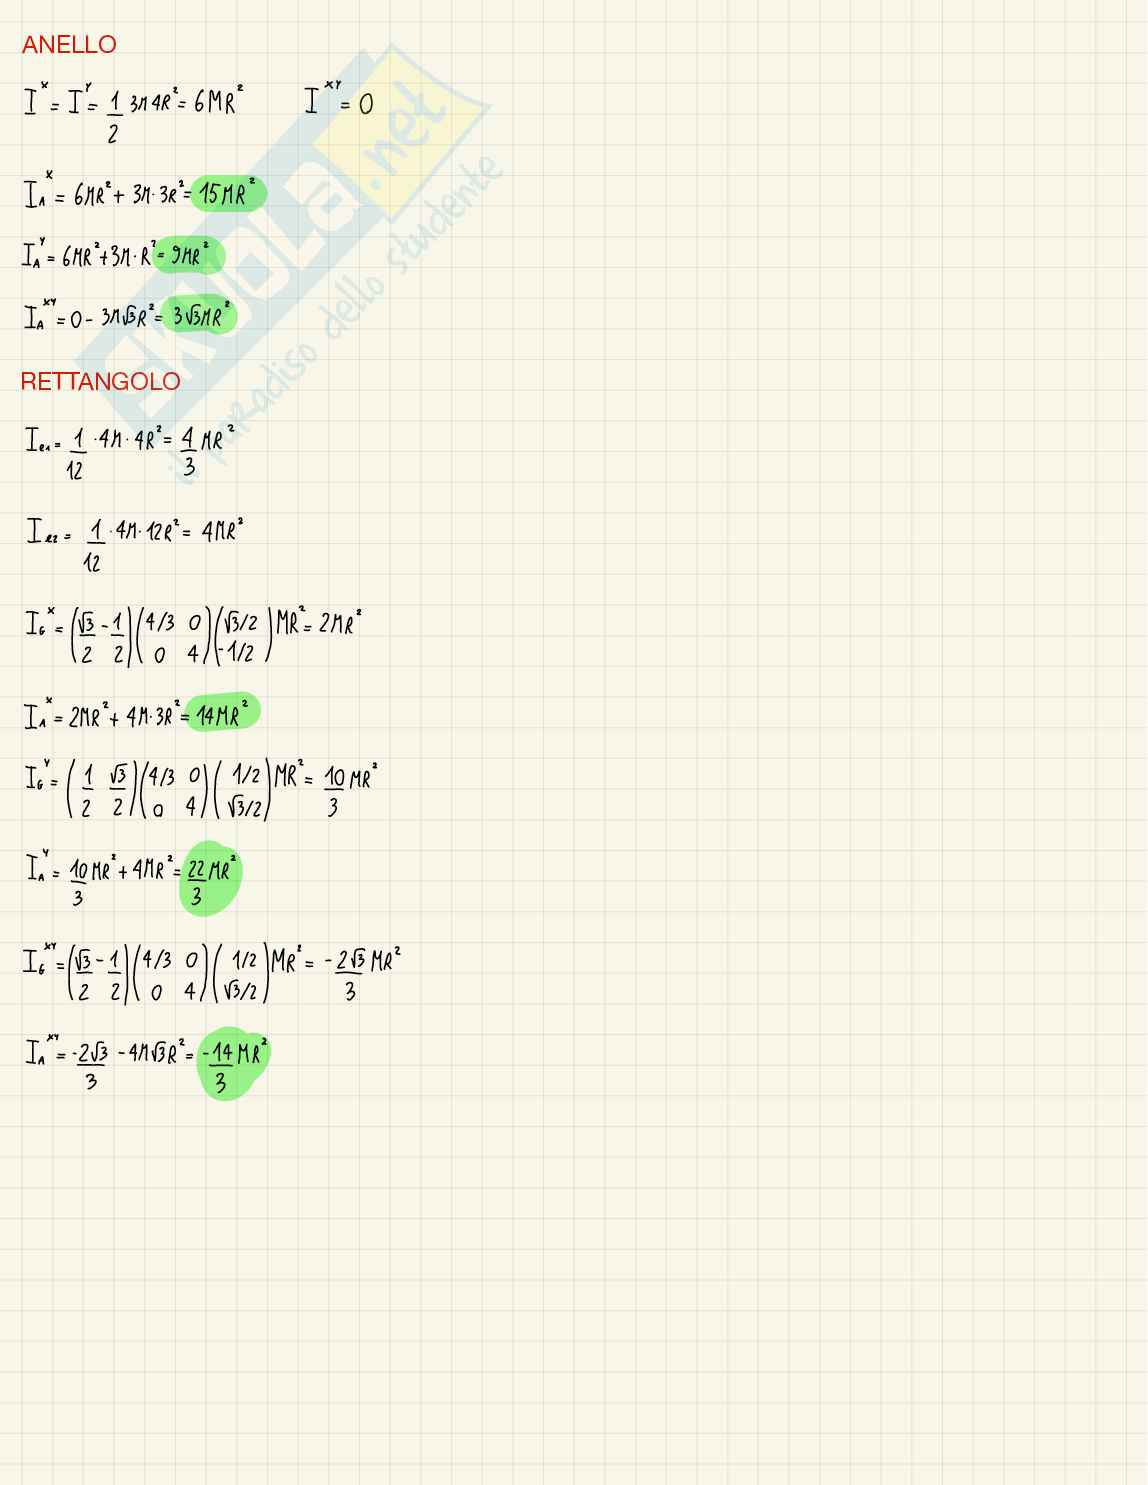 ANELLO
I^x = I^y = 1/2 3M 4R² = 6MR²    I^xy = 0
I_A^x = 6MR² + 3M·3R² = 15MR²
I_A^y = 6MR² + 3M·R² = 9MR²
I_A^xy = 0 - 3M√3R² = 3√3MR²
RETTANGOLO
I_e1 = 1/12 ·4M·4R² = 4/3 MR²
I_e2 = 1/12 ·4M·12R² = 4MR²
I_G^x = (√3/2 -1/2)(4/3 0 0 4)(√3/2 -1/2) MR² = 2MR²
I_A^x = 2MR² + 4M·3R² = 14MR²
I_G^y = (1/2 √3/2)(4/3 0 0 4)(1/2 √3/2) MR² = 10/3 MR²
I_A^y = 10/3 MR² + 4MR² = 22/3 MR²
I_G^xy = (√3/2 -1/2)(4/3 0 0 4)(1/2 √3/2) MR² = -2√3/3 MR²
I_A^xy = -2√3/3 - 4M√3R² = -14/3 MR²
SKUOLA.net
il paradiso dello studente